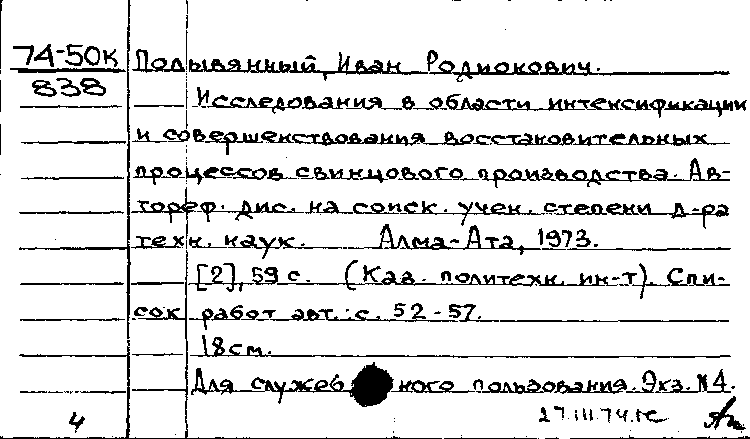 74-50к Полывянный, Иван Родионович.
838
Исследования в области интенсификации
и совершенствования восстановительных
процессов свинцового производства. Ав-
тореф. дис. на соиск. учен. степени д-ра
техн. наук. Алма-Ата, 1973.
[2], 59 с. (Каз. политехн. ин-т). Спи-
сок работ авт.: с. 52-57.
18 см.
Для служебного пользования. Экз. №4.
4 27.III.74.